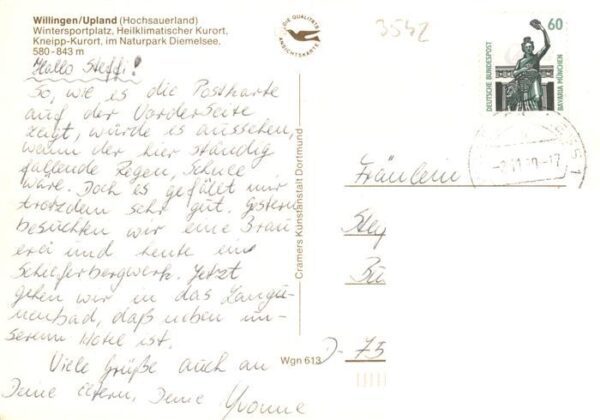 Willingen/Upland (Hochsauerland)
Wintersportplatz, Heilklimatischer Kurort,
Kneipp-Kurort, im Naturpark Diemelsee.
580-843 m
Hallo Steffi!
So, wie es die Postkarte
auf der Vorderseite
zeigt, würde es aussehen,
wenn der hier ständig
fallende Regen, Schnee
wäre. Doch es gefällt mir
trotzdem sehr gut. Gestern
besuchten wir eine Brau
erei und heute ein
Schieferbergwerk. Jetzt
gehen wir in das Lagu-
nenbad, daß neben un-
serem Hotel ist.
Viele Grüße auch an
Deine Eltern, Deine Yvonne
DIE QUALITÄTS
ANSICHTSKARTE
Cramers Kunstanstalt Dortmund
Wgn 613
3542
60
DEUTSCHE BUNDESPOST
BAVARIA MÜNCHEN
Fräulein
D- 75